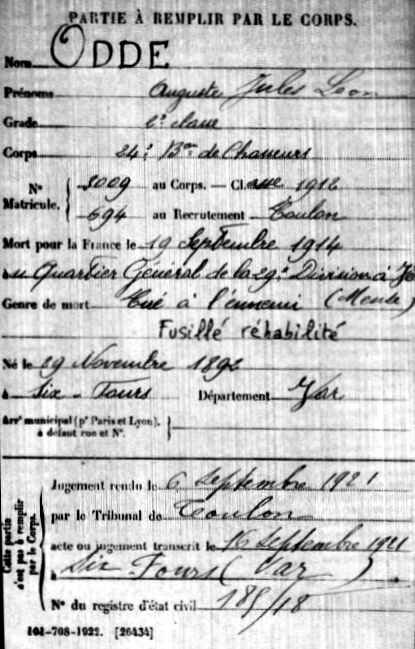 PARTIE À REMPLIR PAR LE CORPS.
Nom ODDE
Prénoms Auguste Jules Leon
Grade 2e classe
Corps 24e Bon de Chasseurs
No Matricule. 5009 au Corps. — Classe 1912
694 au Recrutement Toulon
Mort pour la France le 19 Septembre 1914
au Quartier Général de la 29e Division à
Genre de mort Tué à l'ennemi (Meuse)
Fusillé réhabilité
Né le 29 Novembre 1892
à Six-Fours Département Var
Arrt municipal (pr Paris et Lyon), à défaut rue et No.
Cette partie n'est pas à remplir par le Corps.
Jugement rendu le 6 Septembre 1921
par le Tribunal de Toulon
acte ou jugement transcrit le 16 Septembre 1921
à Six Fours (Var)
No du registre d'état civil 185/18
101-708-1922. [26434]